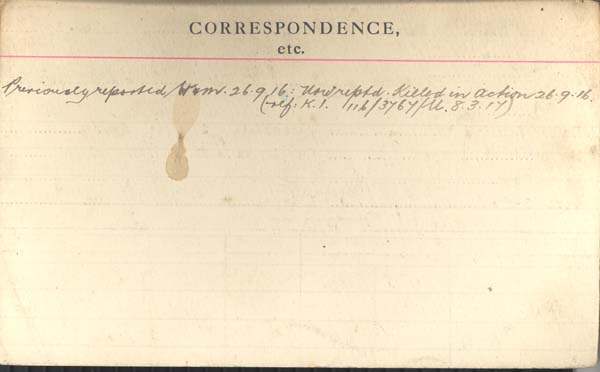 CORRESPONDENCE,
etc.
Previously reported W & M. 26.9.16: Now reptd. Killed in Action 26.9.16.
(ref: K.1. 116/3767/M. 8.3.17)